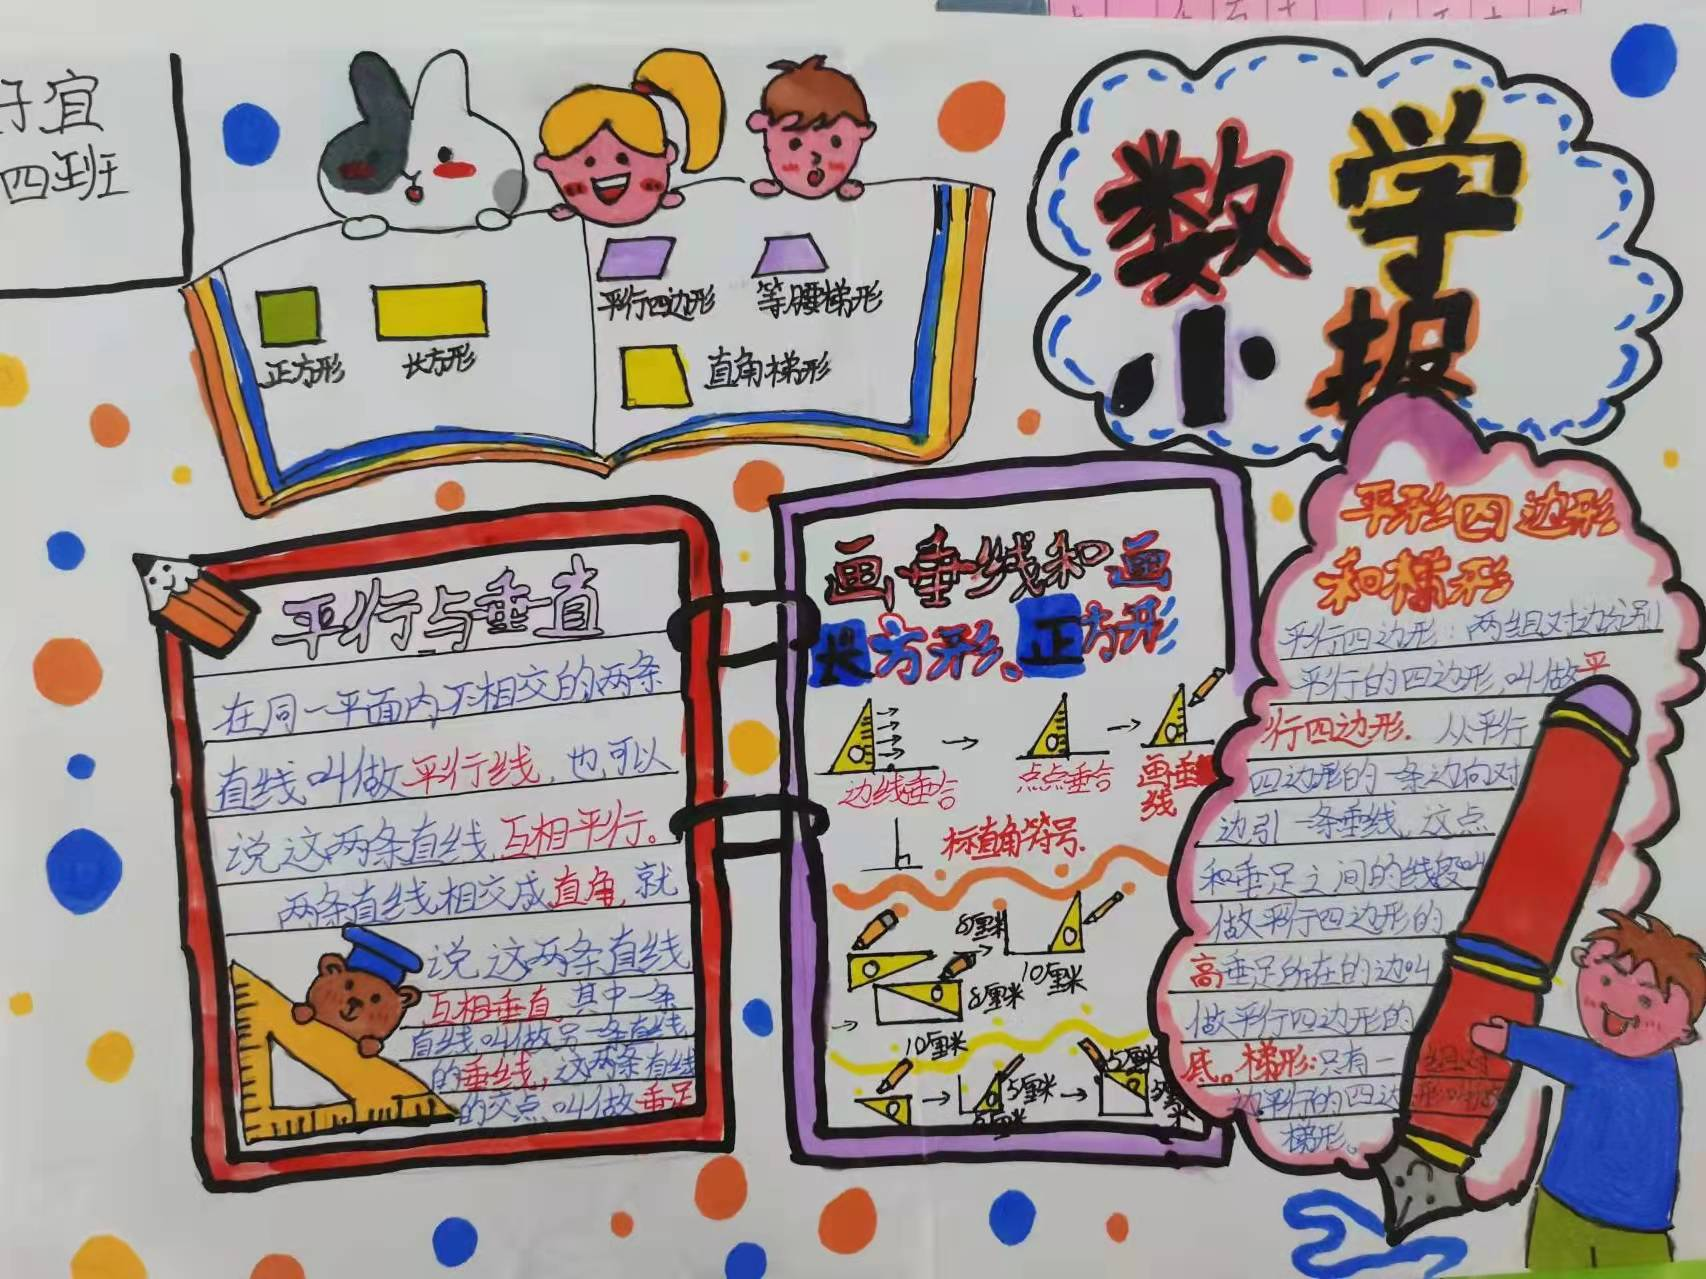 宜
四班
正方形
长方形
平行四边形
等腰梯形
直角梯形
数学
小报
平行与垂直
在同一平面内不相交的两条
直线叫做平行线,也可以
说这两条直线互相平行。
两条直线相交成直角,就
说这两条直线
互相垂直,其中一条
直线叫做另一条直线
的垂线,这两条直线
的交点叫做垂足
画垂线和画
长方形、正方形
边线垂合
点点垂合
画垂
线
标直角符号.
8厘米
10厘米
8厘米
10厘米
5厘米
5厘米
5厘米
平形四边形
和梯形
平行四边形:两组对边分别
平行的四边形,叫做平
行四边形.从平行
四边形的一条边向对
边引一条垂线,这点
和垂足之间的线段叫
做平行四边形的
高垂足所在的边叫
做平行四边形的
底。梯形:只有一组对
边平行的四边形叫做
梯形。